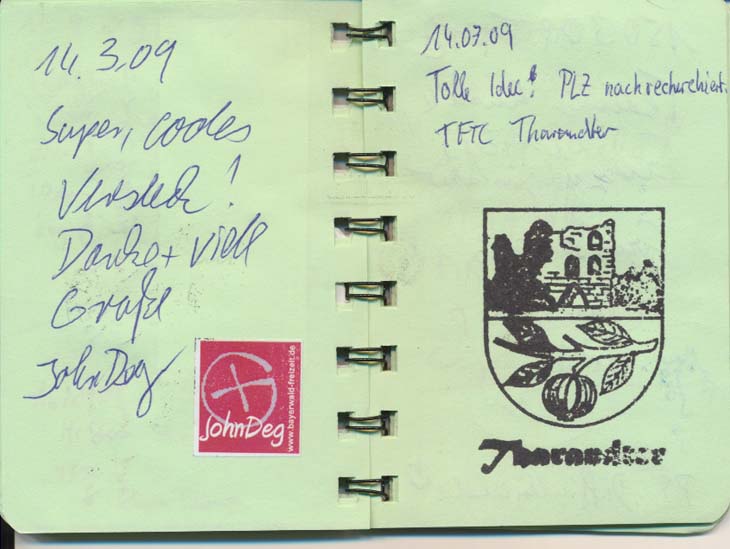 14.3.09
Super, cooles
Versteck!
Danke + viele
Grüße
JohnDeg
JohnDeg
www.bayerwald-freizeit.de
14.03.09
Tolle Idee! PLZ nachrecherchiert.
TFTC Tharandter
Tharandter